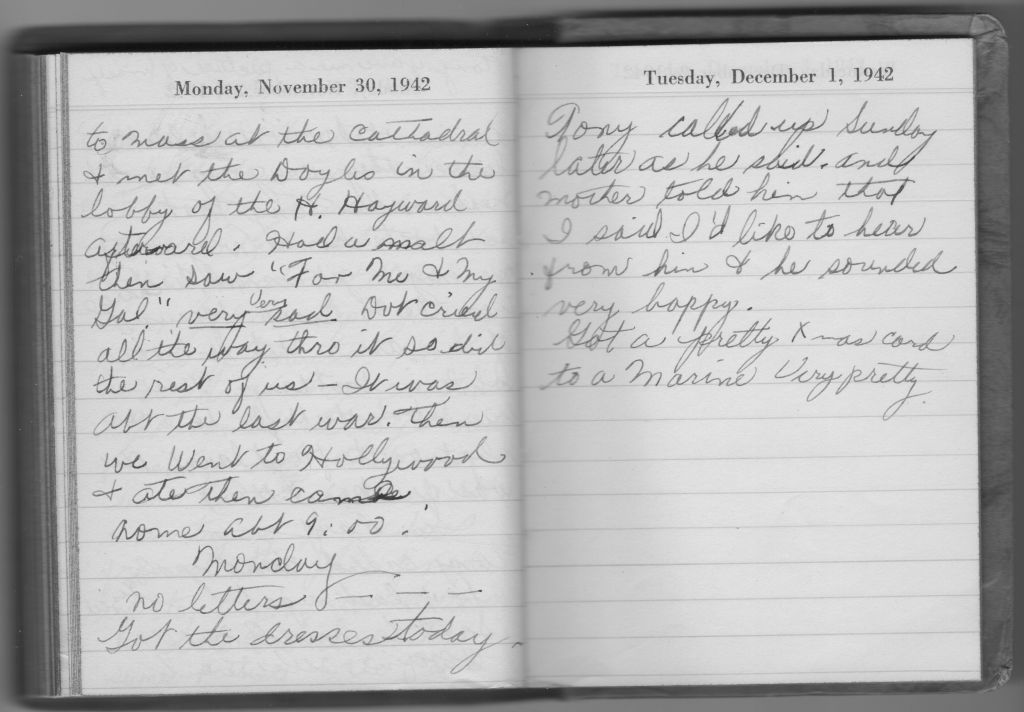 Monday, November 30, 1942
to mass at the Cathadral
& met the Doyles in the
lobby of the H. Hayward
afterward. Had a malt
then saw "For Me & My
Gal" very very sad. Dot cried
all the way thro it so did
the rest of us – It was
abt the last war. Then
we Went to Hollywood
& ate then came
home abt 9:00.
Monday
no letters — — —
Got the dresses today
Tuesday, December 1, 1942
Tony called up Sunday
later as he said. and
mother told him that
I said I'd like to hear
from him & he sounded
very happy.
Got a pretty Xmas card
to a Marine Very pretty.